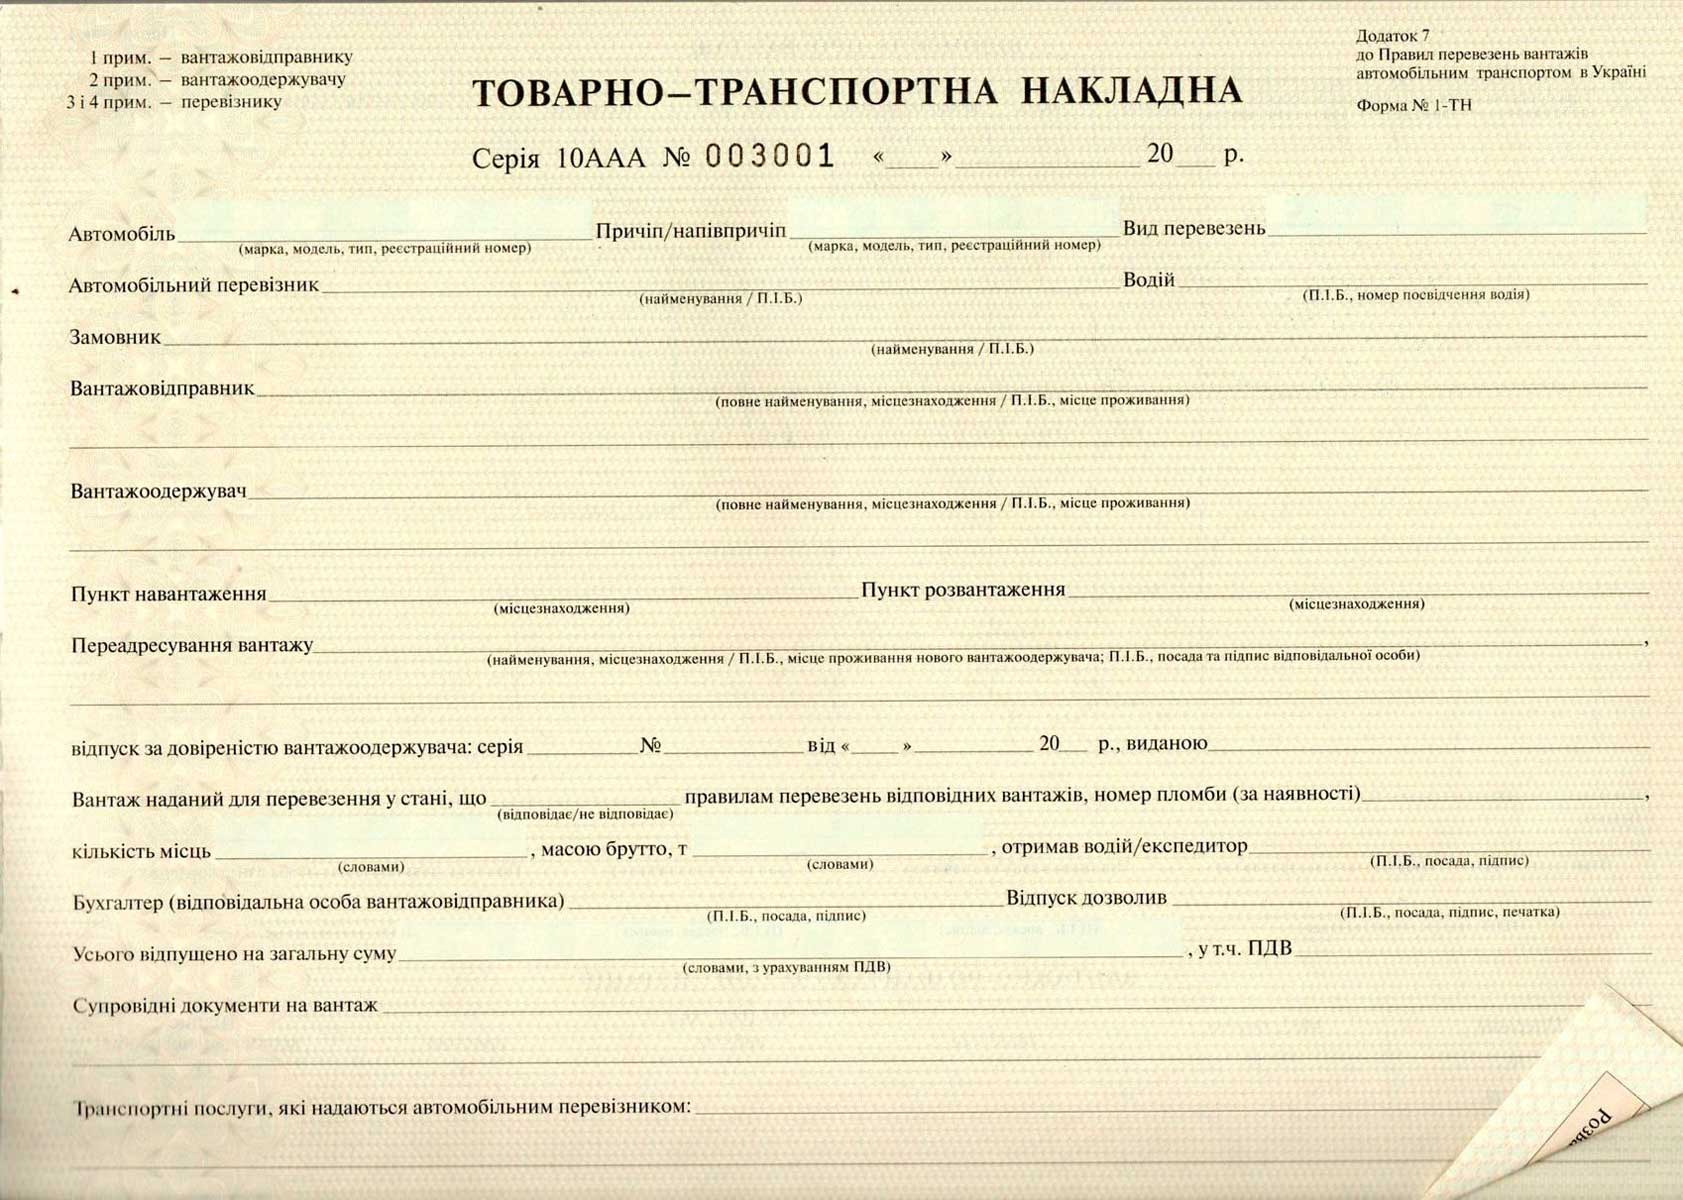 1 прим. – вантажовідправнику
2 прим. – вантажоодержувачу
3 і 4 прим. – перевізнику
Додаток 7
до Правил перевезень вантажів
автомобільним транспортом в Україні
Форма № 1-ТН
ТОВАРНО–ТРАНСПОРТНА НАКЛАДНА
Серія 10ААА № 003001 «____» ______________ 20___ р.
Автомобіль Причіп/напівпричіп Вид перевезень
(марка, модель, тип, реєстраційний номер) (марка, модель, тип, реєстраційний номер)
Автомобільний перевізник Водій
(найменування / П.І.Б.) (П.І.Б., номер посвідчення водія)
Замовник
(найменування / П.І.Б.)
Вантажовідправник
(повне найменування, місцезнаходження / П.І.Б., місце проживання)
Вантажоодержувач
(повне найменування, місцезнаходження / П.І.Б., місце проживання)
Пункт навантаження Пункт розвантаження
(місцезнаходження) (місцезнаходження)
Переадресування вантажу ,
(найменування, місцезнаходження / П.І.Б., місце проживання нового вантажоодержувача; П.І.Б., посада та підпис відповідальної особи)
відпуск за довіреністю вантажоодержувача: серія ________ № ________ від «____» ________ 20__ р., виданою
Вантаж наданий для перевезення у стані, що ________ правилам перевезень відповідних вантажів, номер пломби (за наявності) ,
(відповідає/не відповідає)
кількість місць ________ , масою брутто, т ________ , отримав водій/експедитор
(словами) (словами) (П.І.Б., посада, підпис)
Бухгалтер (відповідальна особа вантажовідправника) Відпуск дозволив
(П.І.Б., посада, підпис) (П.І.Б., посада, підпис, печатка)
Усього відпущено на загальну суму ________ , у т.ч. ПДВ
(словами, з урахуванням ПДВ)
Супровідні документи на вантаж
Транспортні послуги, які надаються автомобільним перевізником: